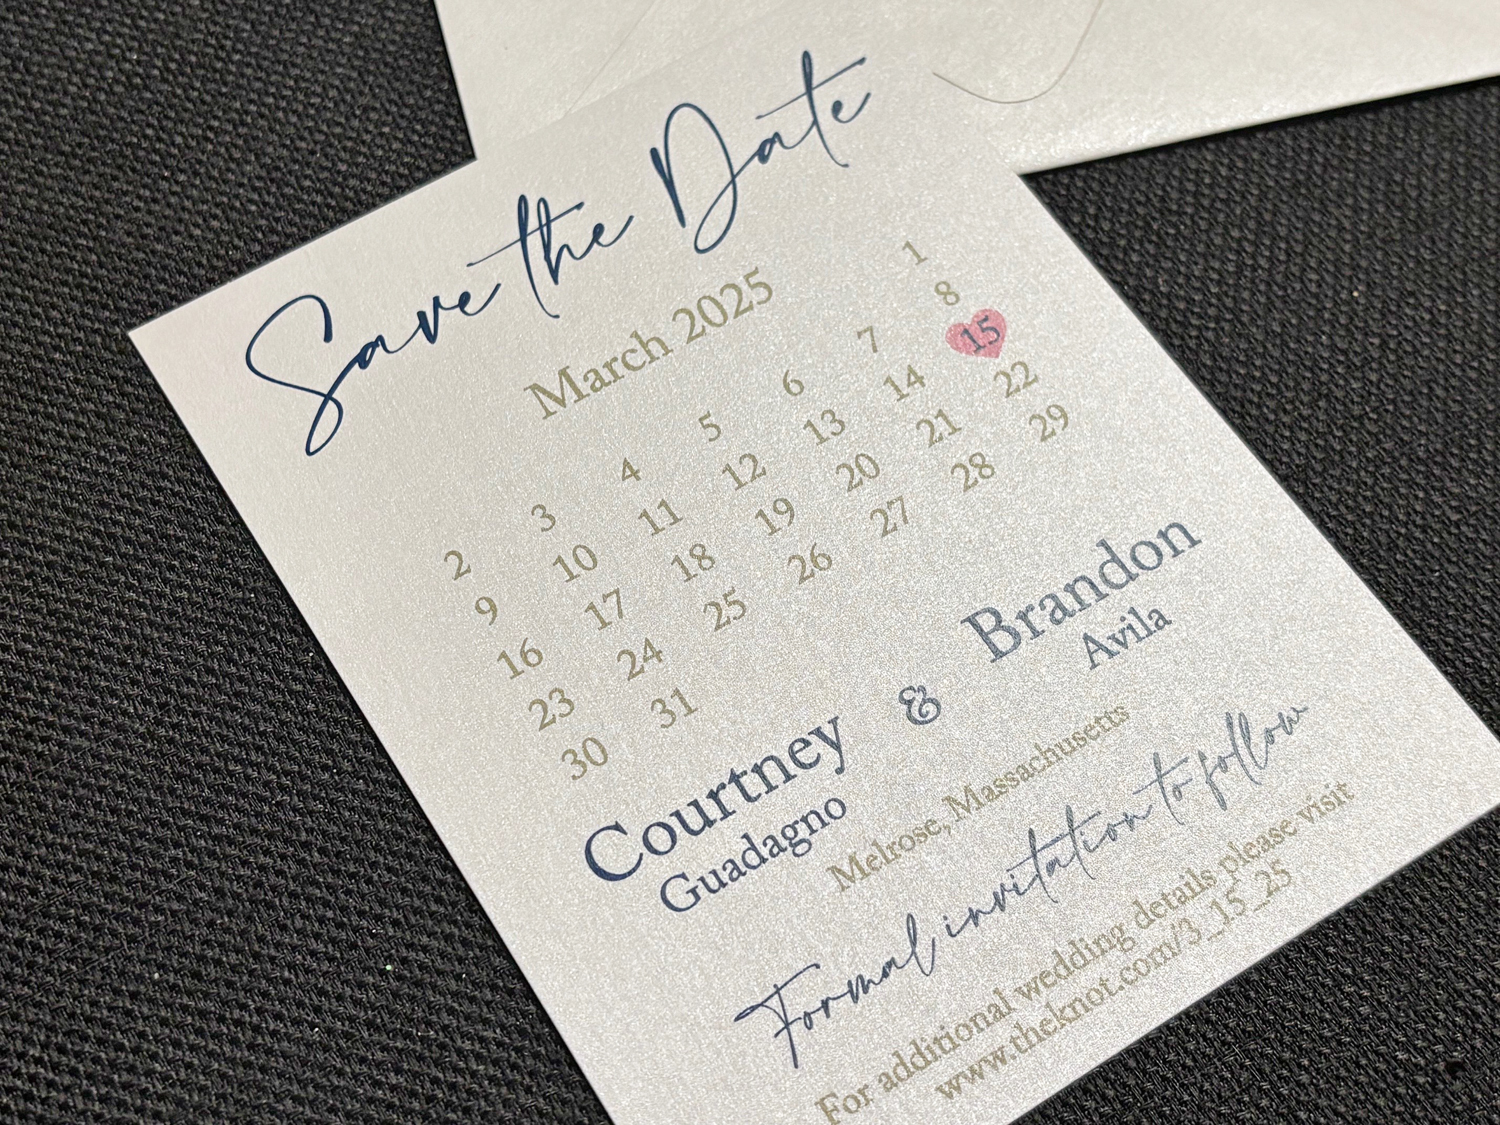 Save the Date
March 2025
1
2 3 4 5 6 7 8
9 10 11 12 13 14 15
16 17 18 19 20 21 22
23 24 25 26 27 28 29
30 31
Courtney & Brandon
Guadagno Avila
Melrose, Massachusetts
Formal invitation to follow
For additional wedding details please visit
www.theknot.com/3_15_25